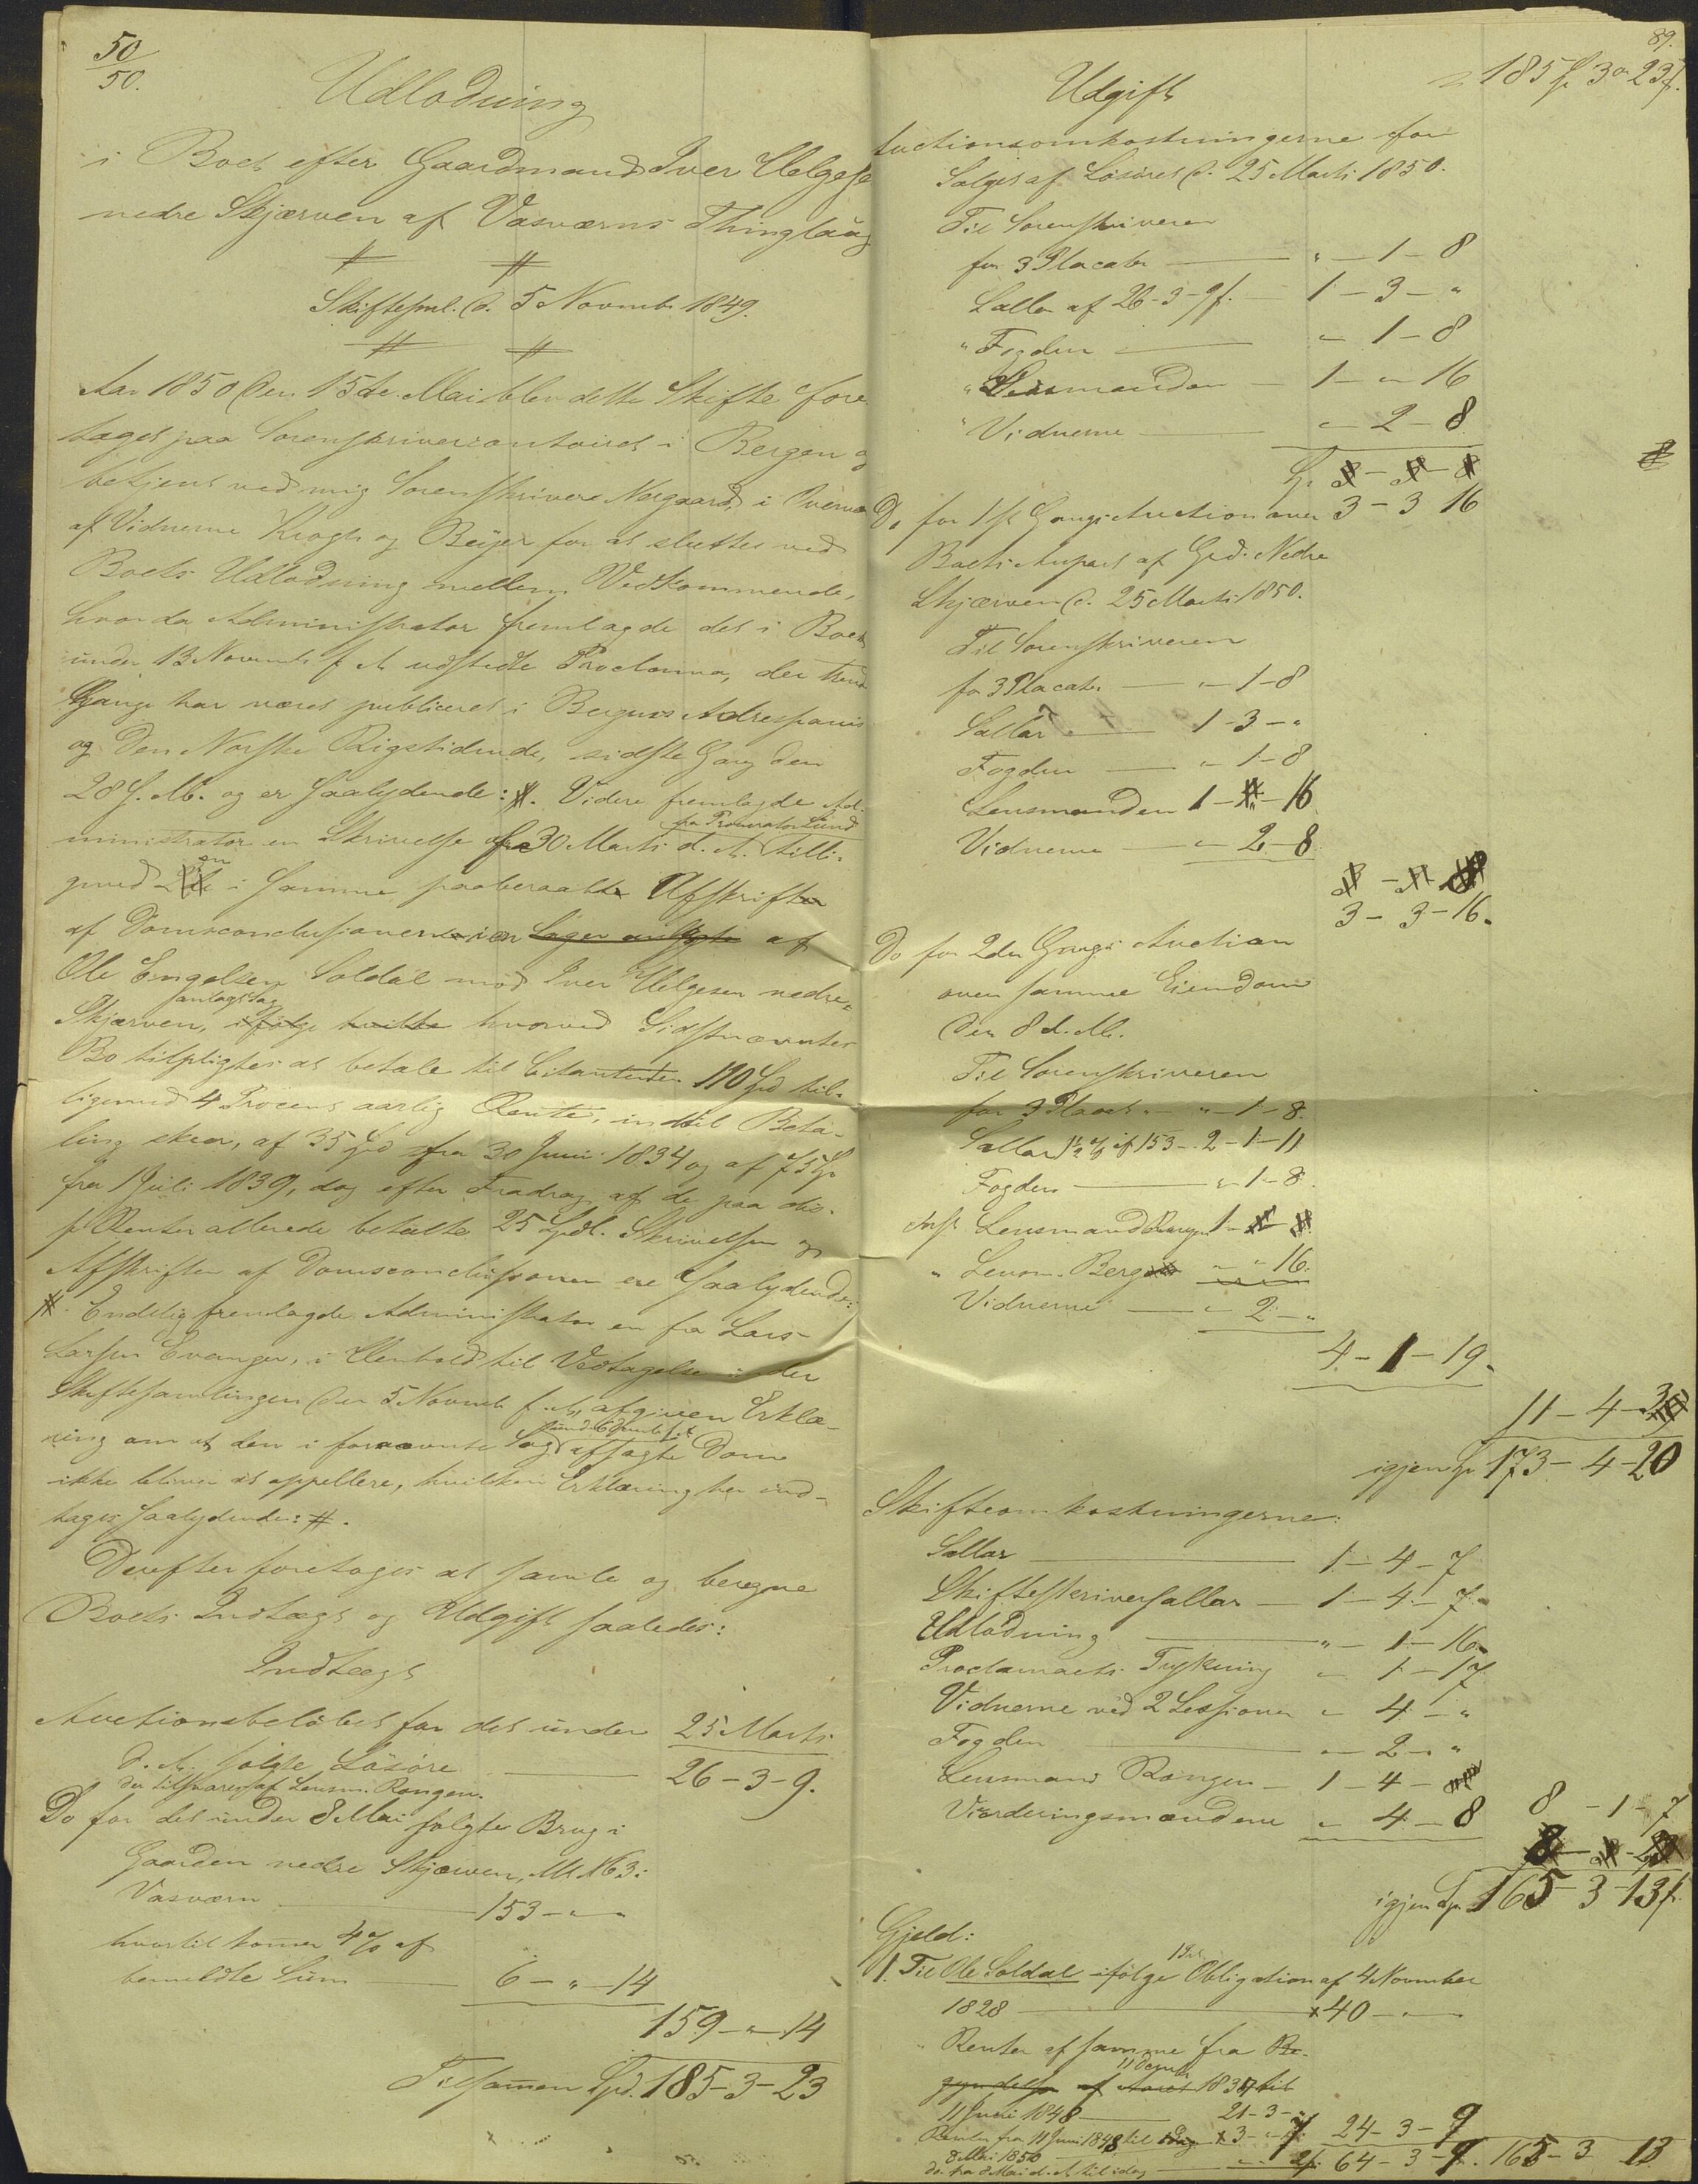 50
50.
Udlodning
i Boet efter Gaardmand Iver Helgese
nedre Skjærven af Vasværns Thinglaug
#  #
Skiftesml. d. 5 Novmb. 1849.
#  #
Aar 1850 den 15de Mai blev dette Skifte fore-
taget paa Sorenskrivercontoiret i Bergen og
betjent ved mig Sorenskriver Norgaard, i Overvær
af Vidnerne Krogh og Beyer for at sluttes ved
Boets Udlodning mellem Vedkommende,
hvorda Administrator fremlagde det i Boet
under 13 Novemb. f. A. udstedte Proclama, der trende
Gange har været publiceret i Bergens Adressavis
og Den Norske Rigstidende, sidste Gang den
28 f. M. og er saalydende: #. Videre fremlagde Ad-
ministrator en Skrivelse fra Procurator Lund 30 Marts d. A. tilli-
gemed en i samme paaberaabte Afskrift
af Domsconclusionen i en Sag af
Ole Engelsen Soldal mod Iver Helgesen nedre
Skjærven, hvorved Sidstnævntes
Bo tilpligtes at betale til Citanten 110 Spd til-
ligemed 4 Procent aarlig Rente, indtil Beta-
ling skeer, af 35 Spd fra 30 Juni 1834 og af 75 Sp
fra 1 Juli 1839, dog efter Fradrag af de paa dis-
se Renter allerede betalte 25 Spdl. Skrivelsen og
Afskriften af Domsconclusionen ere saalydende:
#. Endelig fremlagde Administrator en fra Lars
Larsen Evanger, i Henhold til Vedtagelse i der
Skiftesamlingen den 5 Novmb. f. A., afgiven Erklæ-
ring om at den i fornævnte Sag afsagte Dom
ikke bliver at appellere, hvilken Erklæring her ind-
tages saalydende: #.
Derefter foretoges at samle og beregne
Boets Indtægt og Udgift saaledes:
Indtægt
Auctionsbeløbet for det under 25 Marts
d. A. solgte Løsøre 26 - 3 - 9.
der tilsvares af Lensm. Rongen.
Do for det under 8 Mai solgte Brug i
Gaarden nedre Skjærven, M. N. 63 i
Vasværn 153 - " - "
hvortil kommer 4% af
bemeldte Sum 6 - " - 14
159 - " - 14
Tilsammen Spd. 185 - 3 - 23
89.
185 Sp 3 or 23 s.
Udgift
Auctionsomkostningerne for
Salget af Løsøret d. 25 Marts 1850.
Til Sorenskriveren
for 3 Placater " - 1 - 8
Sallar af 26 - 3 - 9 s. 1 - 3 - "
" Fogden " - 1 - 8
" Lensmanden 1 - " - 16
" Vidnerne " - 2 - 8
Do for 1ste Gangs Auction over 3 - 3 16
Boets Anpart af Grd. Nedre
Skjærven d. 25 Marts 1850.
Til Sorenskriveren
for 3 Placater " - 1 - 8
Sallar 1 - 3 - "
Fogden " - 1 - 8
Lensmanden 1 - " - 16
Vidnerne " - 2 - 8
3 - 3 - 16.
Do for 2den Gangs Auction
over samme Eiendom
den 8 d. M.
Til Sorenskriveren
for 3 Placat. " - 1 - 8.
Sallar 1½ % af 153 - 2 - 1 - 11
Fogden " - 1 - 8.
Lensmand Rongen 1 -
" Lensm. Berg " " 16.
Vidnerne " - 2 - "
4 - 1 - 19.
11 - 4 - 3
igjen Sp 173 - 4 - 20
Skifteomkostningerne:
Sallar 1 - 4 - 7
Skifteskriversallar 1 - 4 - 7
Udlodning " - 1 - 16
Proclamaets Trykning " - 1 - 17
Vidnerne ved 2 Sessioner " 4 - "
Fogden " - 2 - "
Lensmand Rongen 1 - 4 -
Vurderingsmændene " 4 - 8
8 - 1 - 7
igjen Sp. 165 - 3 - 13 s.
Gjeld:
1. Til Ole Soldal ifølge Obligation af 4 November
1828 x 40 - " - "
" Renter af samme fra
11 Decmb. 1834 til
11 Juni 1848 21 - 3 - "
Renter fra 11 Juni 1848 til x 3 - " - 7 24 - 3 - 9
8 Mai 1850
do. fra 8 Mai d. A. til idag " - 2 s. 64 - 3 - 9. 165 - 3 13